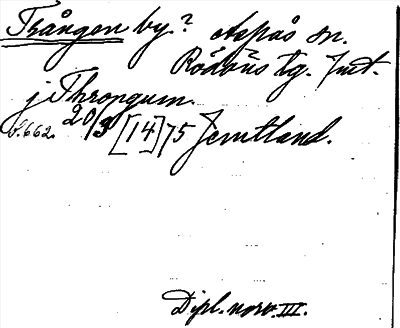 Trången by? Aspås sn.
Rödöns tg. Jmt.
j Throngum.
s. 662. 20/3 [14]75 Jemtland.
Dipl. norv. III.